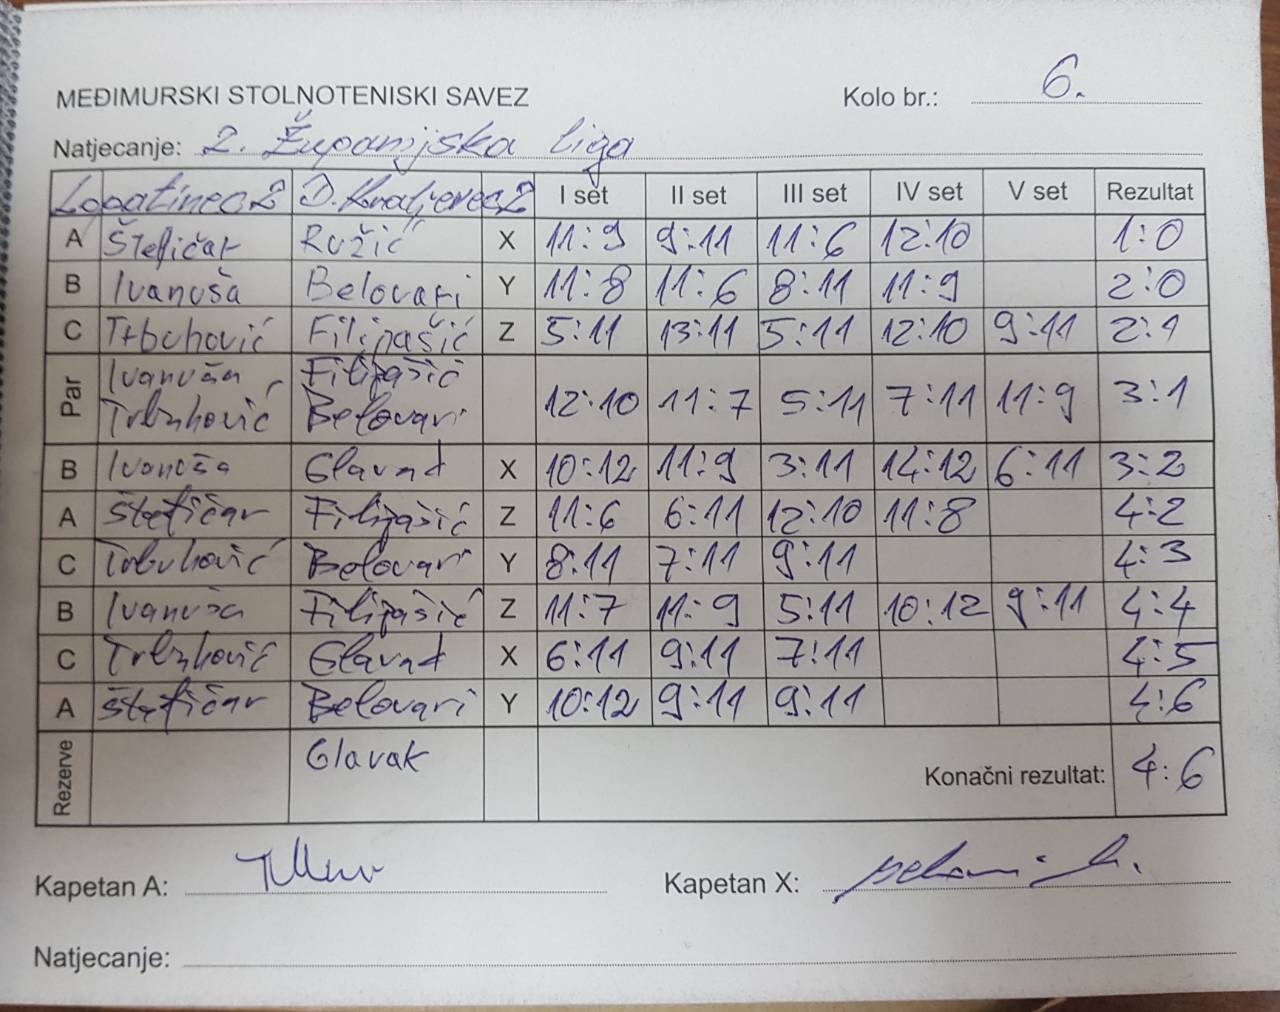 MEĐIMURSKI STOLNOTENISKI SAVEZ Kolo br.: 6.
Natjecanje: 2. Županijska liga
Lopatinec 2 D. Kraljevec 2 I set II set III set IV set V set Rezultat
A Štefičar Ružić X 11:9 9:11 11:6 12:10 1:0
B Ivanuša Belovari Y 11:8 11:6 8:11 11:9 2:0
C Trbuhović Filipašić Z 5:11 13:11 5:11 12:10 9:11 2:1
Par Ivanuša Filipašić
Trbuhović Belovari 12:10 11:7 5:11 7:11 11:9 3:1
B Ivanuša Glavak X 10:12 11:9 3:11 14:12 6:11 3:2
A Štefičar Filipašić Z 11:6 6:11 12:10 11:8 4:2
C Trbuhović Belovari Y 8:11 7:11 9:11 4:3
B Ivanuša Filipašić Z 11:7 11:9 5:11 10:12 9:11 4:4
C Trbuhović Glavak X 6:11 9:11 7:11 4:5
A Štefičar Belovari Y 10:12 9:11 9:11 4:6
Rezerve Glavak Konačni rezultat: 4:6
Kapetan A: Kapetan X:
Natjecanje: